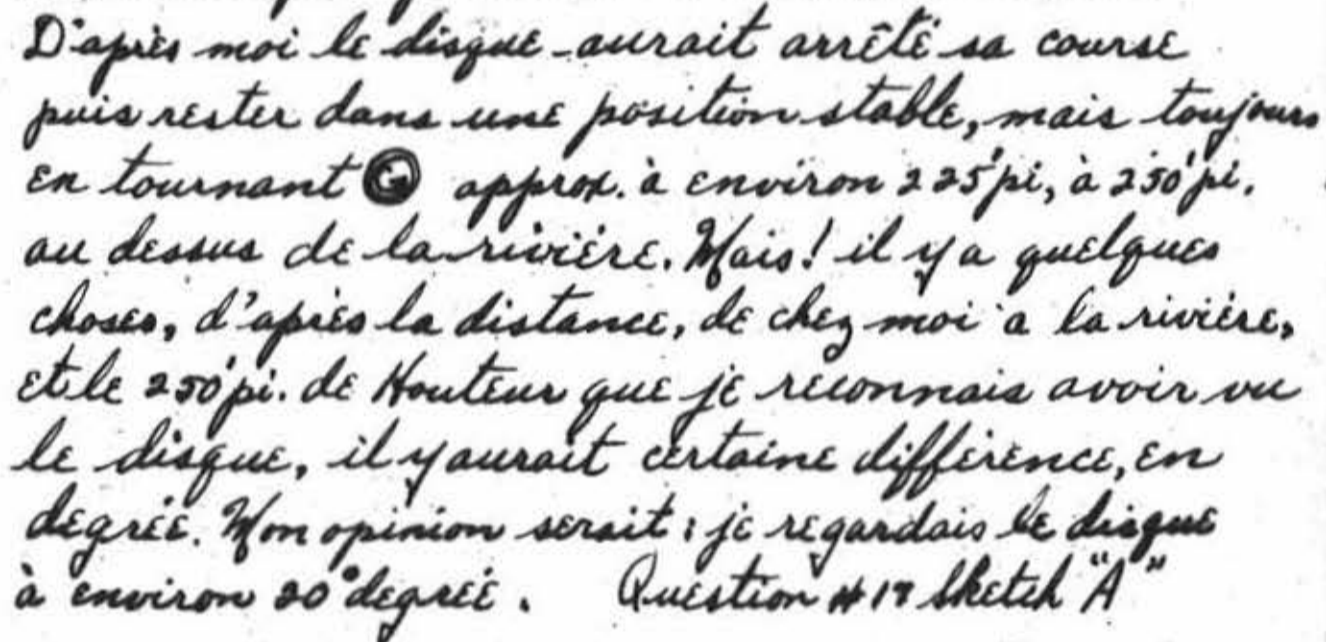 D'après moi le disque aurait arrêté sa course
puis rester dans une position stable, mais toujours
en tournant approx. à environ 225' pi, à 250' pi.
au dessus de la rivière. Mais! il y a quelques
choses, d'après la distance, de chez moi a la rivière,
et le 250' pi. de Hauteur que je reconnais avoir vu
le disque, il y aurait certaine différence, en
degrée. Mon opinion serait : je regardais le disque
à environ 20° degréé. Question # Sketch "A"